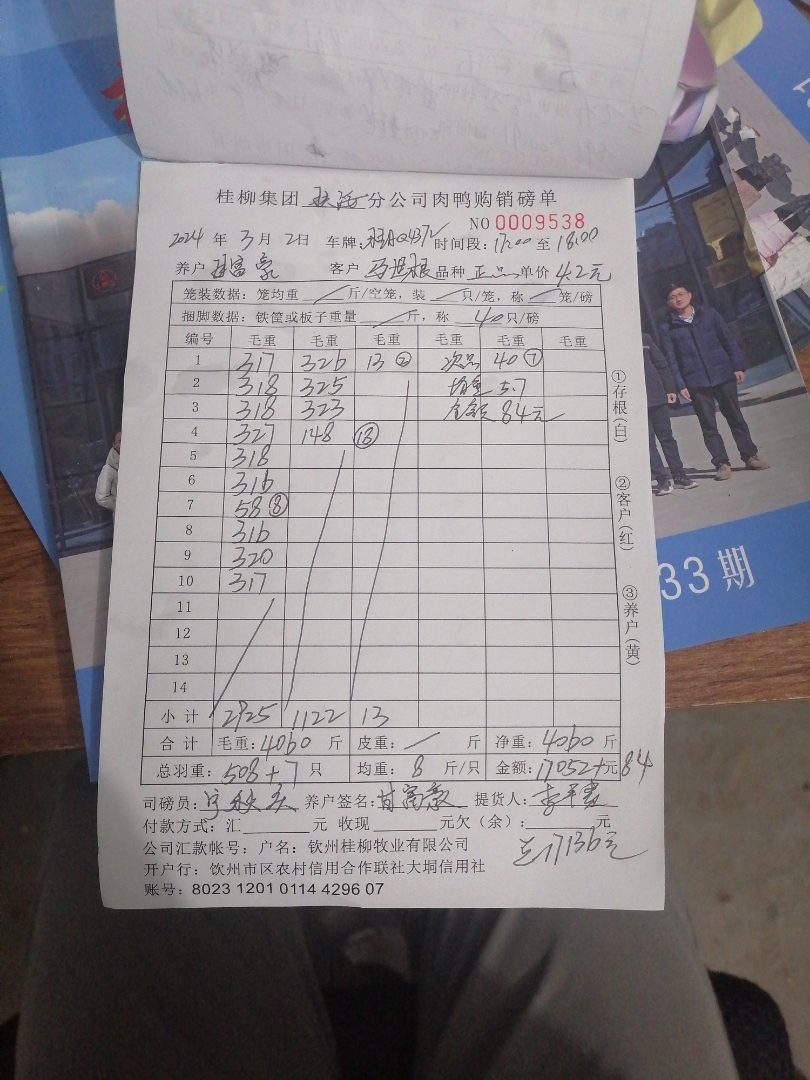 桂柳集团 分公司肉鸭购销磅单
NO 0009538
2024 年 3 月 2 日 车牌: 时间段: 17:00 至 18:00
养户 富 客户 品种 正品 单价 4.2元
笼装数据: 笼均重 / 斤/空笼, 装 / 只/笼, 称 / 笼/磅
捆脚数据: 铁筐或板子重量 / 斤, 称 40 只/磅
编号 毛重 毛重 毛重 毛重 毛重 毛重
1 317 326 13 ② 次品 40 ⑦
2 318 325 均重 5.7
3 318 323 金额 84元
4 327 148 ⑱
5 318
6 316
7 58 ⑧
8 316
9 320
10 317
11
12
13
14
小计 2925 1122 13
合计 毛重: 4060 斤 皮重: / 斤 净重: 4060 斤
总羽重: 508+7 只 均重: 8 斤/只 金额: 17052+元84
司磅员: 养户签名: 提货人: 李
付款方式: 汇 元 收现 元欠(余): 元
公司汇款帐号: 户名: 钦州桂柳牧业有限公司
总17136元
开户行: 钦州市区农村信用合作联社大垌信用社
账号: 8023 1201 0114 4296 07
①存根(白)
②客户(红)
③养户(黄)
33期